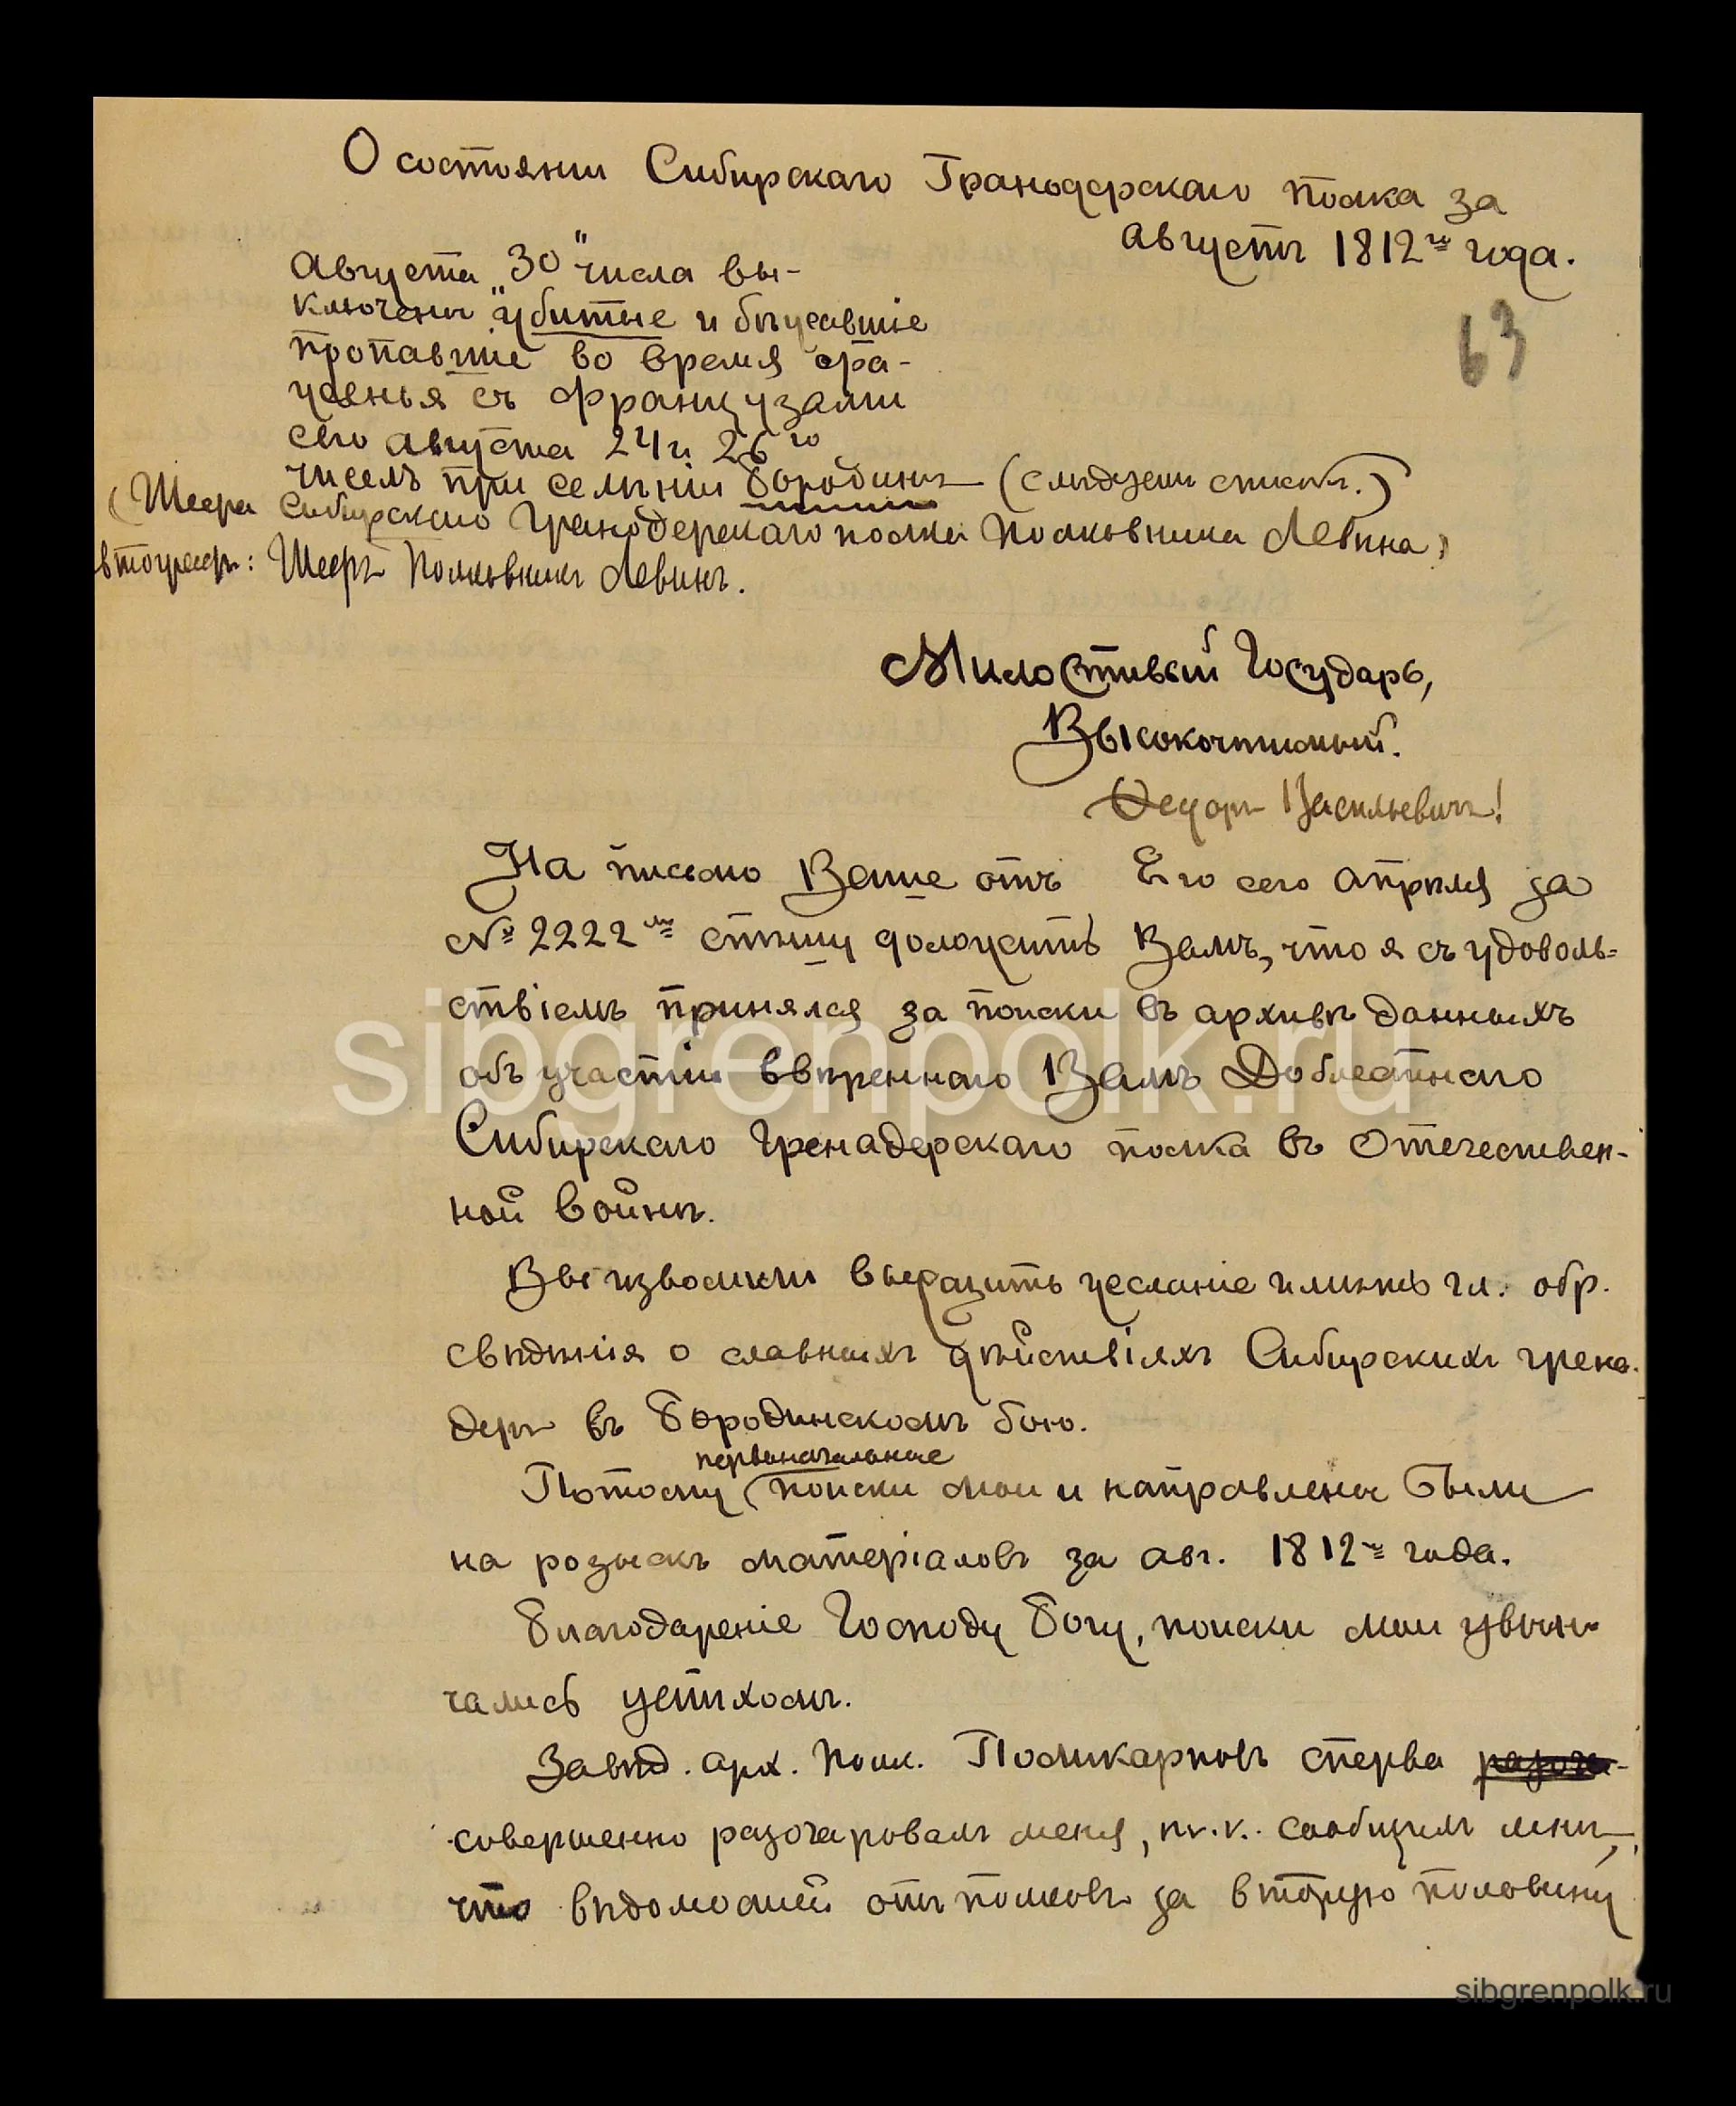 О состоянии Сибирскаго Гранодерскаго полка за
Августъ 1812го года.
Августа „30" числа вы-
ключены „убитые и безъ вѣсти
пропавшіе во время сра-
женья съ французами
сего августа 24 и 26го
чиселъ при селеніи Бородинѣ (слѣдуетъ списокъ.)
(Шефа Сибирскаго Гранодерскаго полка Полковника Левина)
втографъ: Шефъ Полковникъ Левинъ.
63
Милостивый Государь,
Высокочтимый.
Федоръ Васильевичъ!
На письмо Ваше отъ Его сего Апрѣля за
№ 2222мъ спѣшу доложить Вамъ, что я съ удоволь=
ствіемъ принялся за поиски въ архивѣ данныхъ
объ участіи ввѣреннаго Вамъ Доблестнаго
Сибирскаго Гренадерскаго полка въ Отечествен-
ной войнѣ.
Вы изволили выразить желаніе имѣть гл. обр.
свѣдѣнія о славныхъ дѣйствіяхъ Сибирскихъ грена-
деръ въ Бородинскомъ бою.
первоначальные
Потому поиски мои и направлены были
на розыскъ матеріаловъ за авг. 1812го года.
Благодареніе Господу Богу, поиски мои увѣн-
чались успѣхомъ.
Завѣд. арх. Полк. Поликарповъ сперва разоча-
совершенно разочаровалъ меня, т.к. сообщилъ мнѣ,
что вѣдомостей отъ полковъ за вторую половину
sibgrenpolk.ru
sibgrenpolk.ru